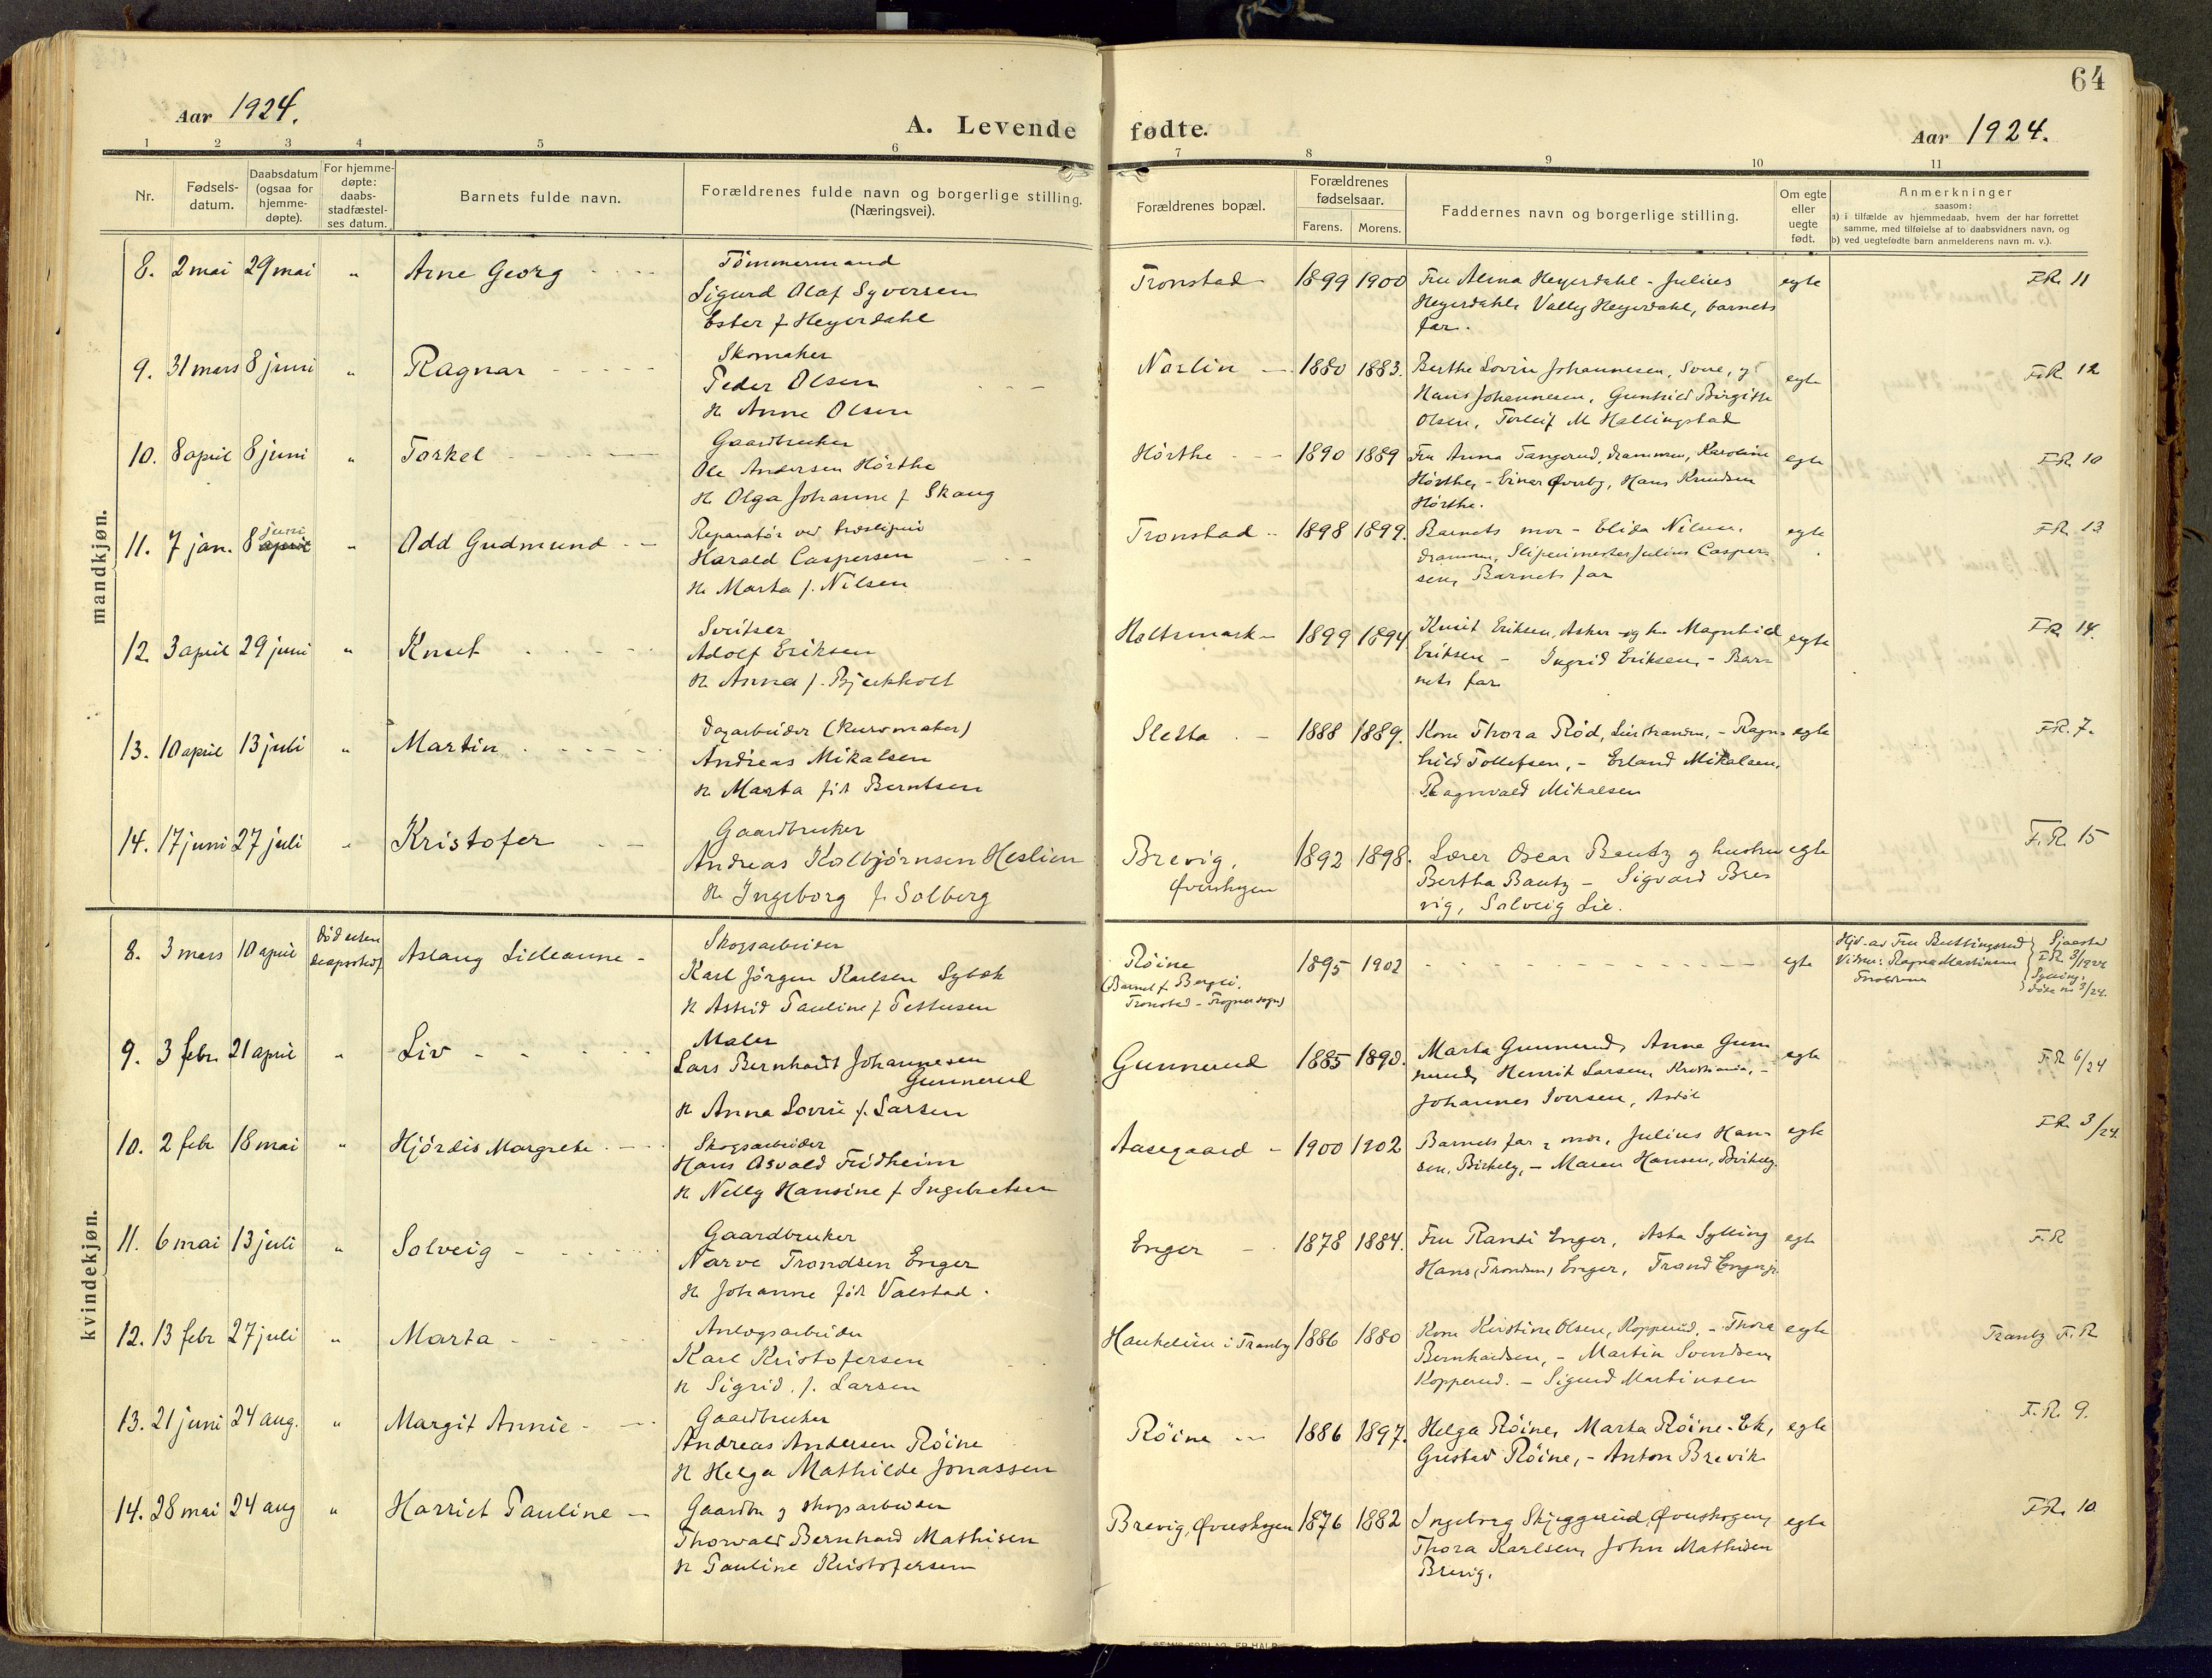 64
Aar 1924.
A. Levende fødte.
Aar 1924.
1 2 3 4 5 6 7 8 9 10 11
Nr.
Fødsels-
datum.
Daabsdatum
(ogsaa for
hjemme-
døpte).
For hjemme-
døpte:
daabs-
stadfæstel-
ses datum.
Barnets fulde navn.
Forældrenes fulde navn og borgerlige stilling.
(Næringsvei).
Forældrenes bopæl.
Forældrenes
fødselsaar.
Farens. Morens.
Faddernes navn og borgerlige stilling.
Om egte
eller
uegte
født.
Anmerkninger
saasom:
a) i tilfælde av hjemmedaab, hvem der har forrettet
samme, med tilføielse af to daabsvidners navn, og
b) ved uegtefødte barn anmelderens navn m. v.).
mandkjøn.
8. 2 mai 29 mai " Arne Georg
Tömmermand
Sigurd Olaf Syversen
Ester f Heyerdahl
Tronstad 1899 1900
Fru Alma Heyerdahl - Julius
Heyerdahl, Vally Heyerdahl, barnets
far.
egte FR. 11
9. 31 mars 8 juni " Ragnar
Skomaker
Peder Olsen
H. Anne Olsen
1880 1883.
Berthe Lovise Johannesen,
Hans Johannesen, Gunhild Birgitte
Olsen, Torleif M Hallingstad
egte F.R. 12
10. 8 april 8 juni " Torkel
Gaardbruker
Ole Andersen Hörthe
H. Olga Johanne f Skaug
Hörthe 1890 1889
Fru Anna Tangerud, Drammen, Karoline
Hörthe, - Einar Øverby, Hans Knudsen
Hörthe.
egte FR. 10
11. 7 jan. 8 juni april " Odd Gudmund
Reparatör ved træsliperi
Harald Caspersen
H. Marta f. Nilsen
Tronstad 1898 1899.
Barnets mor - Elida Nilsen,
Drammen, Slipermester Julius Casper-
sen, Barnets far
egte FR. 13
12. 3 april 29 juni " Knut
Sveitser
Adolf Eriksen
H. Anna f. Bjerkholt
Holtsmark 1899 1894
Knut Eriksen, Asker og hu Magnhild
Eriksen - Ingrid Eriksen - Bar-
nets far
egte FR. 14.
13. 10 april 13 juli " Martin
Dagarbeider (kurvmaker)
Andreas Mikalsen
H. Marta föd Berntsen
Sletta 1888 1889.
Kone Thora Röd, Lierstranden, - Ragn-
hild Tollefsen, - Erland Mikalsen,
Ragnvald Mikalsen
egte FR. 7.
14. 17 juni 27 juli " Kristofer
Gaardbruker
Andreas Kolbjörnsen Heslien
H. Ingeborg f. Solberg
Brevig,
Øverskogen
1892 1898.
Lærer Oscar Bautz og hustru
Bertha Bautz - Sigvard Bre-
vig, Solveig Lie.
egte F.R. 15
kvindekjøn.
8. 3 mars 10 april
Död uten
Aslaug Lilleanne
Skogsarbeider
Karl Jörgen Karlsen Sybæk
H. Astrid Pauline f Pettersen
Röine
(Barnet f. Bergli,
Tronstad - Frogner sogn)
1895 1902
egte
Hjd. av Fru Buttingsrud
Vidner: Ragna Martinsen
Sjaastad
FR 3/1924
Sylling,
døde nr 3/24.
9. 3 febr. 21 april " Liv
Maler
Lars Bernhardt Johannesen
Gunnerud
H. Anna Lovise f. Larsen
Gunnerud 1885 1890.
Marta Gunnerud, Anna Gun-
nerud, Henrik Larsen, Kristiania, -
Johannes Iversen, Asdöl
egte F.R. 6/24
10. 2 febr 18 mai " Hjördis Margrete
Skogsarbeider
Hans Osvald Fridheim
H. Nelly Hansine f Ingebretsen
Aasegaard 1900 1902
Barnets far & mor, Julius Han-
sen, Birkely, - Maren Hansen, Birkely.
egte FR. 3/24.
11. 6 mai 13 juli " Solveig
Gaardbruker
Narve Trondsen Enger
H. Johanne föd Valstad.
Enger 1878 1884.
Fru Randi Enger, Asta Sylling
Hans (Trondsen) Enger, Trond Enger jr.
egte F.R
12. 13 febr 27 juli " Marta
Anlægsarbeider
Karl Kristofersen
H. Sigrid. f. Larsen
Haukelien i Tranby 1886 1880
Kone Kirstine Olsen, Kopperud, - Thora
Bernhardsen, - Martin Svendsen,
Kopperud. - Sigurd Martinsen
egte Tranby F.R
13. 21 juni 24 aug. " Margit Annie
Gaardbruker
Andreas Andersen Röine
H. Helga Mathilde Jonassen
Röine 1886 1897.
Helga Röine, Marta Röine-Ek,
Gustav Röine, - Anton Brevik
egte F.R. 9.
14. 28 mai 24 aug " Harriet Pauline
Gaardbr og skogsarbeider
Thorvald Bernhard Mathisen
H. Pauline Kristofersen
Brevig, Øverskogen 1876 1882
Ingeborg Skjeggerud, Øverskogen,
Thora Karlsen, John Mathisen
Brevig.
egte FR. 10